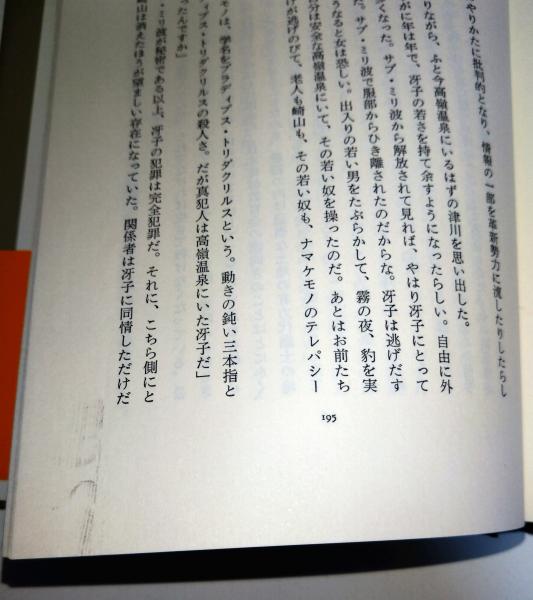 やりかたに批判的となり、情報の一部を革新勢力に流したりしたらし
りながら、ふと今高嶺温泉にいるはずの津川を思い出した。
がに年は年で、冴子の若さを持て余すようになったらしい。自由に外
くなった。サブ・ミリ波から解放されて見れば、やはり冴子にとって
た。サブ・ミリ波で服部からひき離されたのだからな。冴子は逃げだす
うなると女は恐しい。出入りの若い男をたぶらかして、霧の夜、豹を実
分は安全な高嶺温泉にいて、その若い奴を操ったのだ。あとはお前たち
け逃げのびて、老人も崎山も、その若い奴も、ナマケモノのテレパシー
モノは、学名をブラディプス・トリダクリルスという。動きの鈍い三本指と
ィプス・トリダクリルスの殺人さ。だが真犯人は高嶺温泉にいた冴子だ」
ったんですか」
・ミリ波が秘密である以上、冴子の犯罪は完全犯罪だ。それに、こちら側にと
山は消えたほうが望ましい存在になっていた。関係者は冴子に同情しただけだ
195